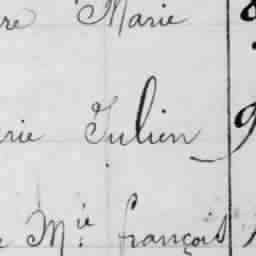 re Marie 8
rie Julien 9
Mie françois